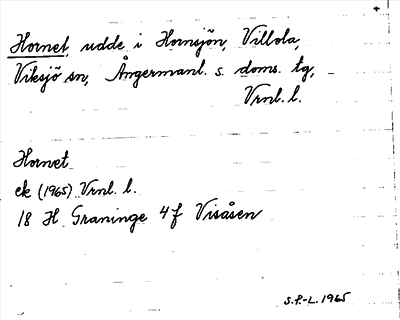 Hornet, udde i Hornsjön, Villola,
Viksjö sn, Ångermanl. s. doms. tg,
Vrnl. l.
Hornet
ek (1965) Vrnl. l.
18 H Graninge 4f Visåsen
S.P.-L. 1965